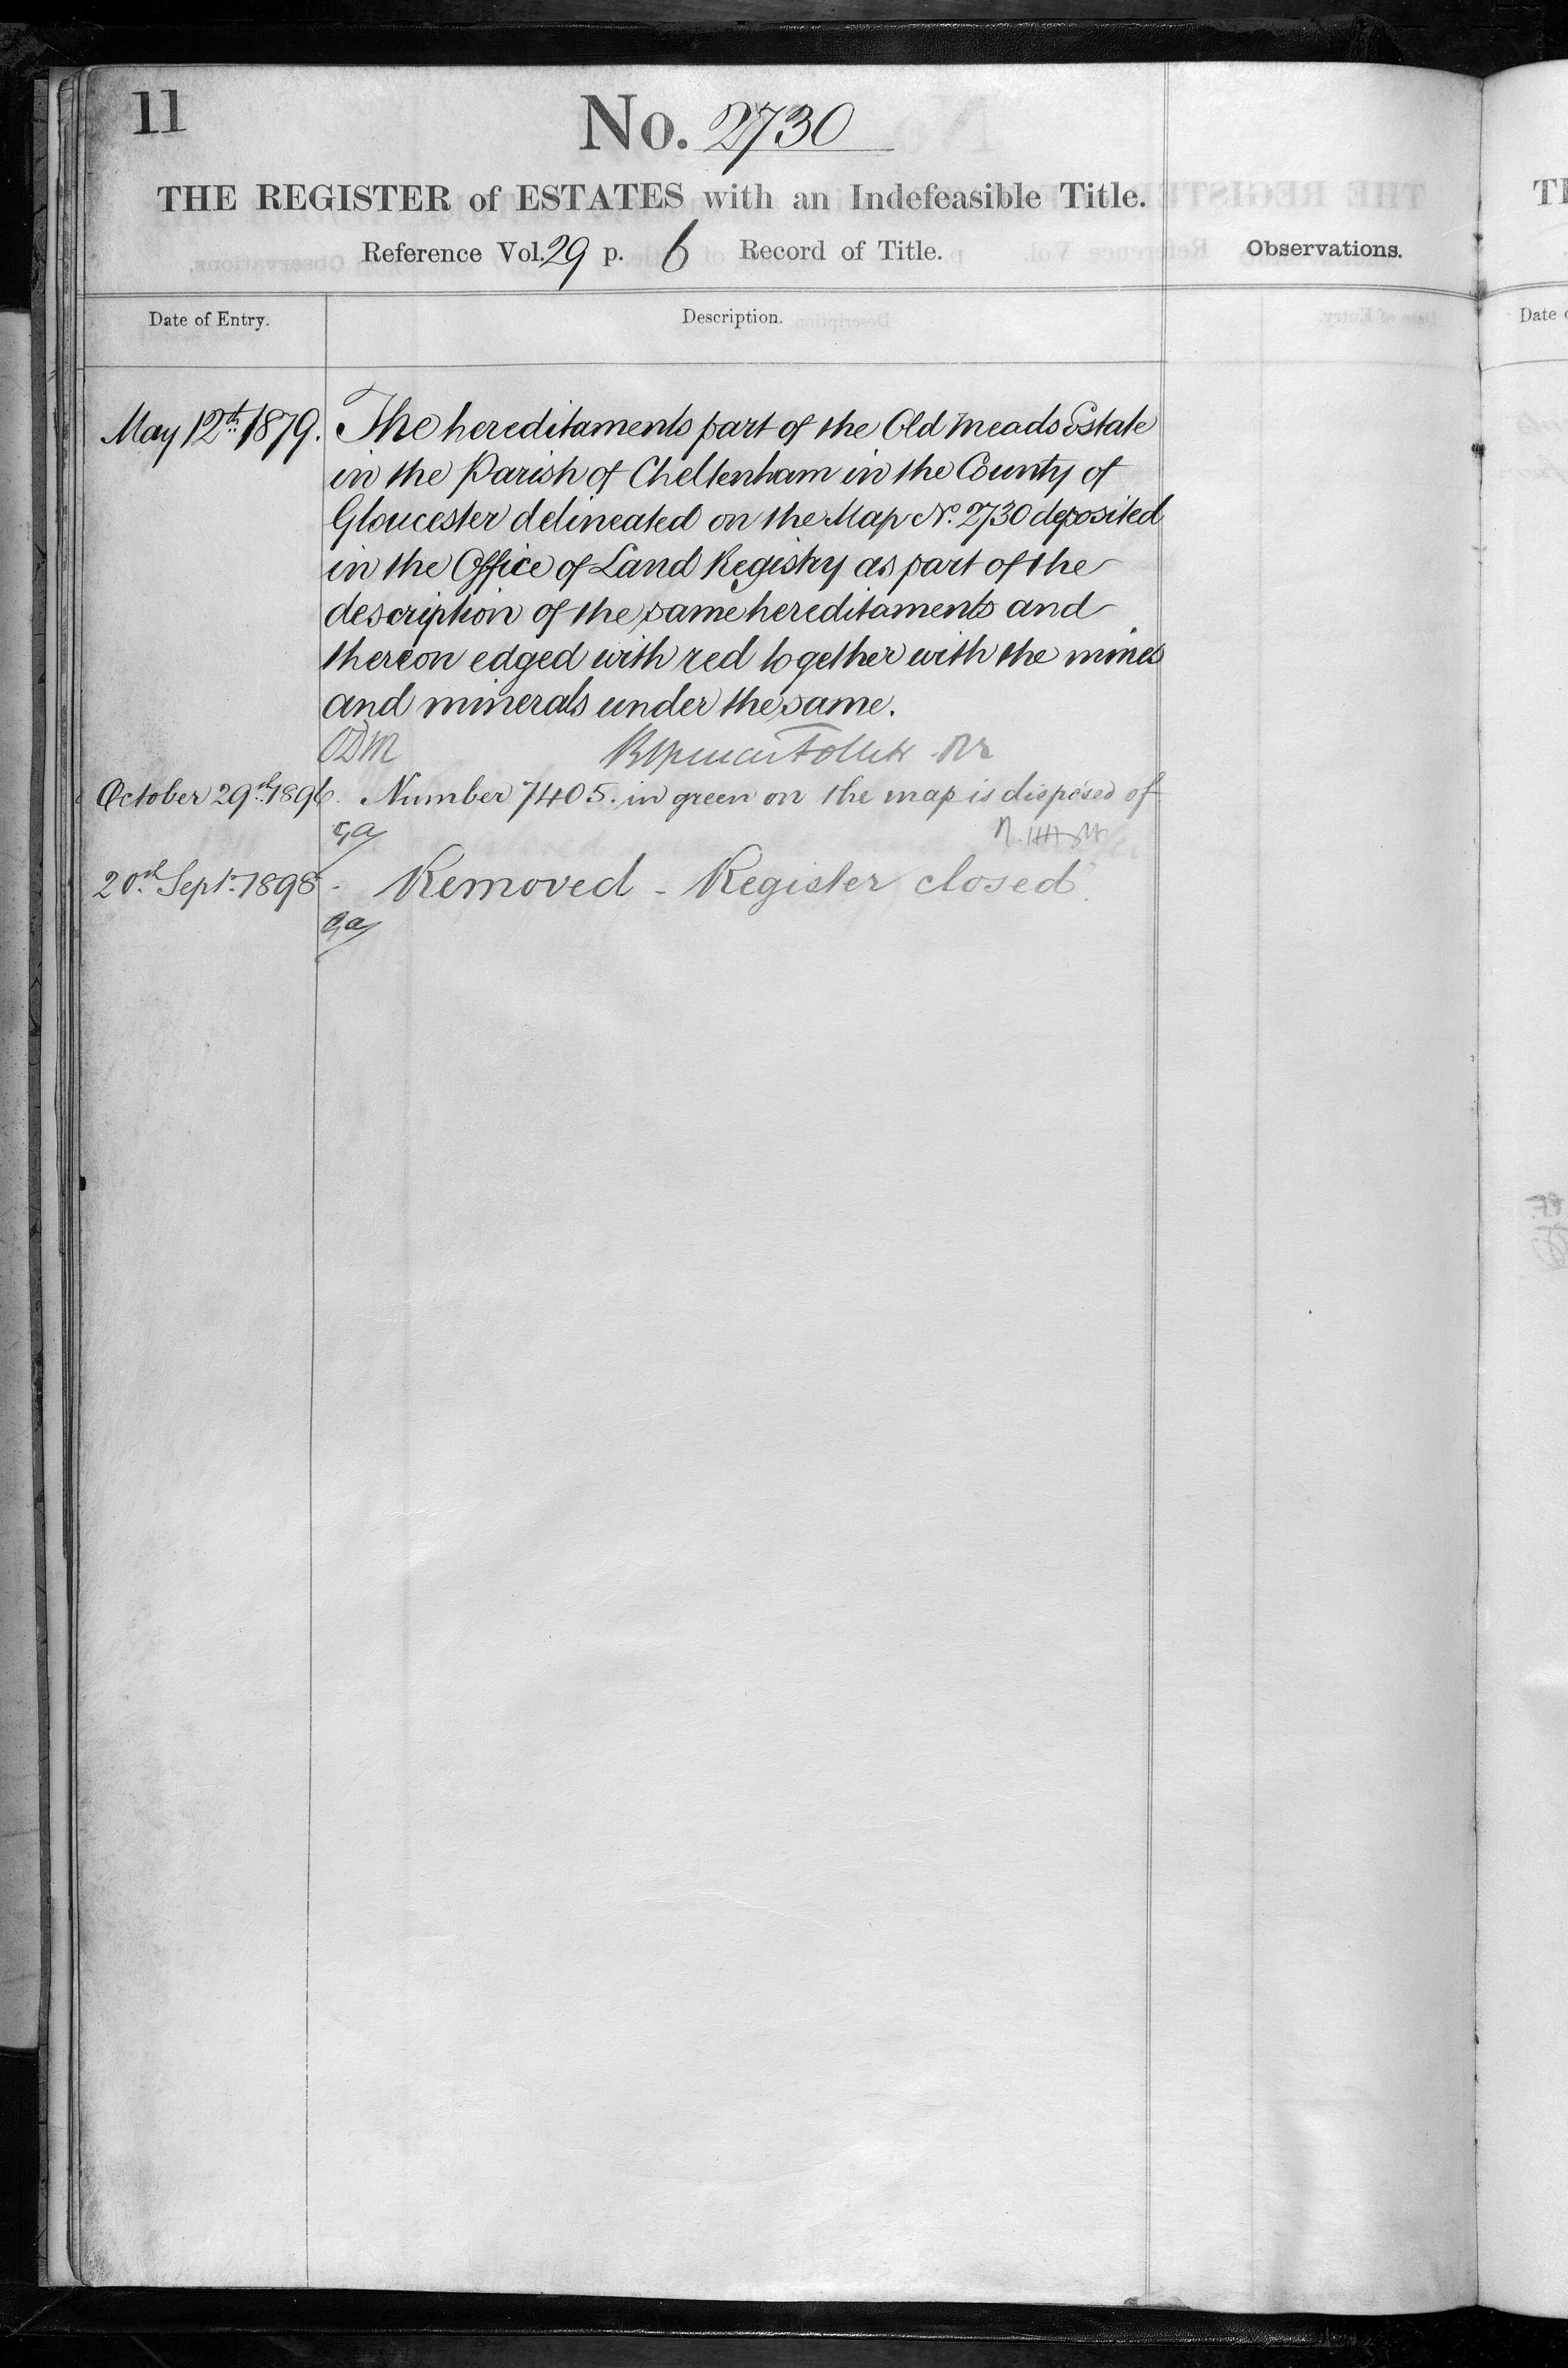 11
No. 2730
THE REGISTER of ESTATES with an Indefeasible Title.
Reference Vol. 29 p. 6 Record of Title.
Observations.
Date of Entry.
Description.
May 12th 1879. The hereditaments part of the Old Meads Estate
in the Parish of Cheltenham in the County of
Gloucester delineated on the Map No. 2730 deposited
in the Office of Land Registry as part of the
description of the same hereditaments and
thereon edged with red together with the mines
and minerals under the same.
October 29th 1896. Number 7405. in green on the map is disposed of
20th Sept. 1898 - Removed - Register closed